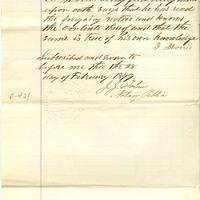 upon oath says that he has read
the forgoing notice and knows
the contents thereof and that the
same is true of his own knowledge
Subscribed and sworn to
before me this the 25
day of February 1879
Notary Public